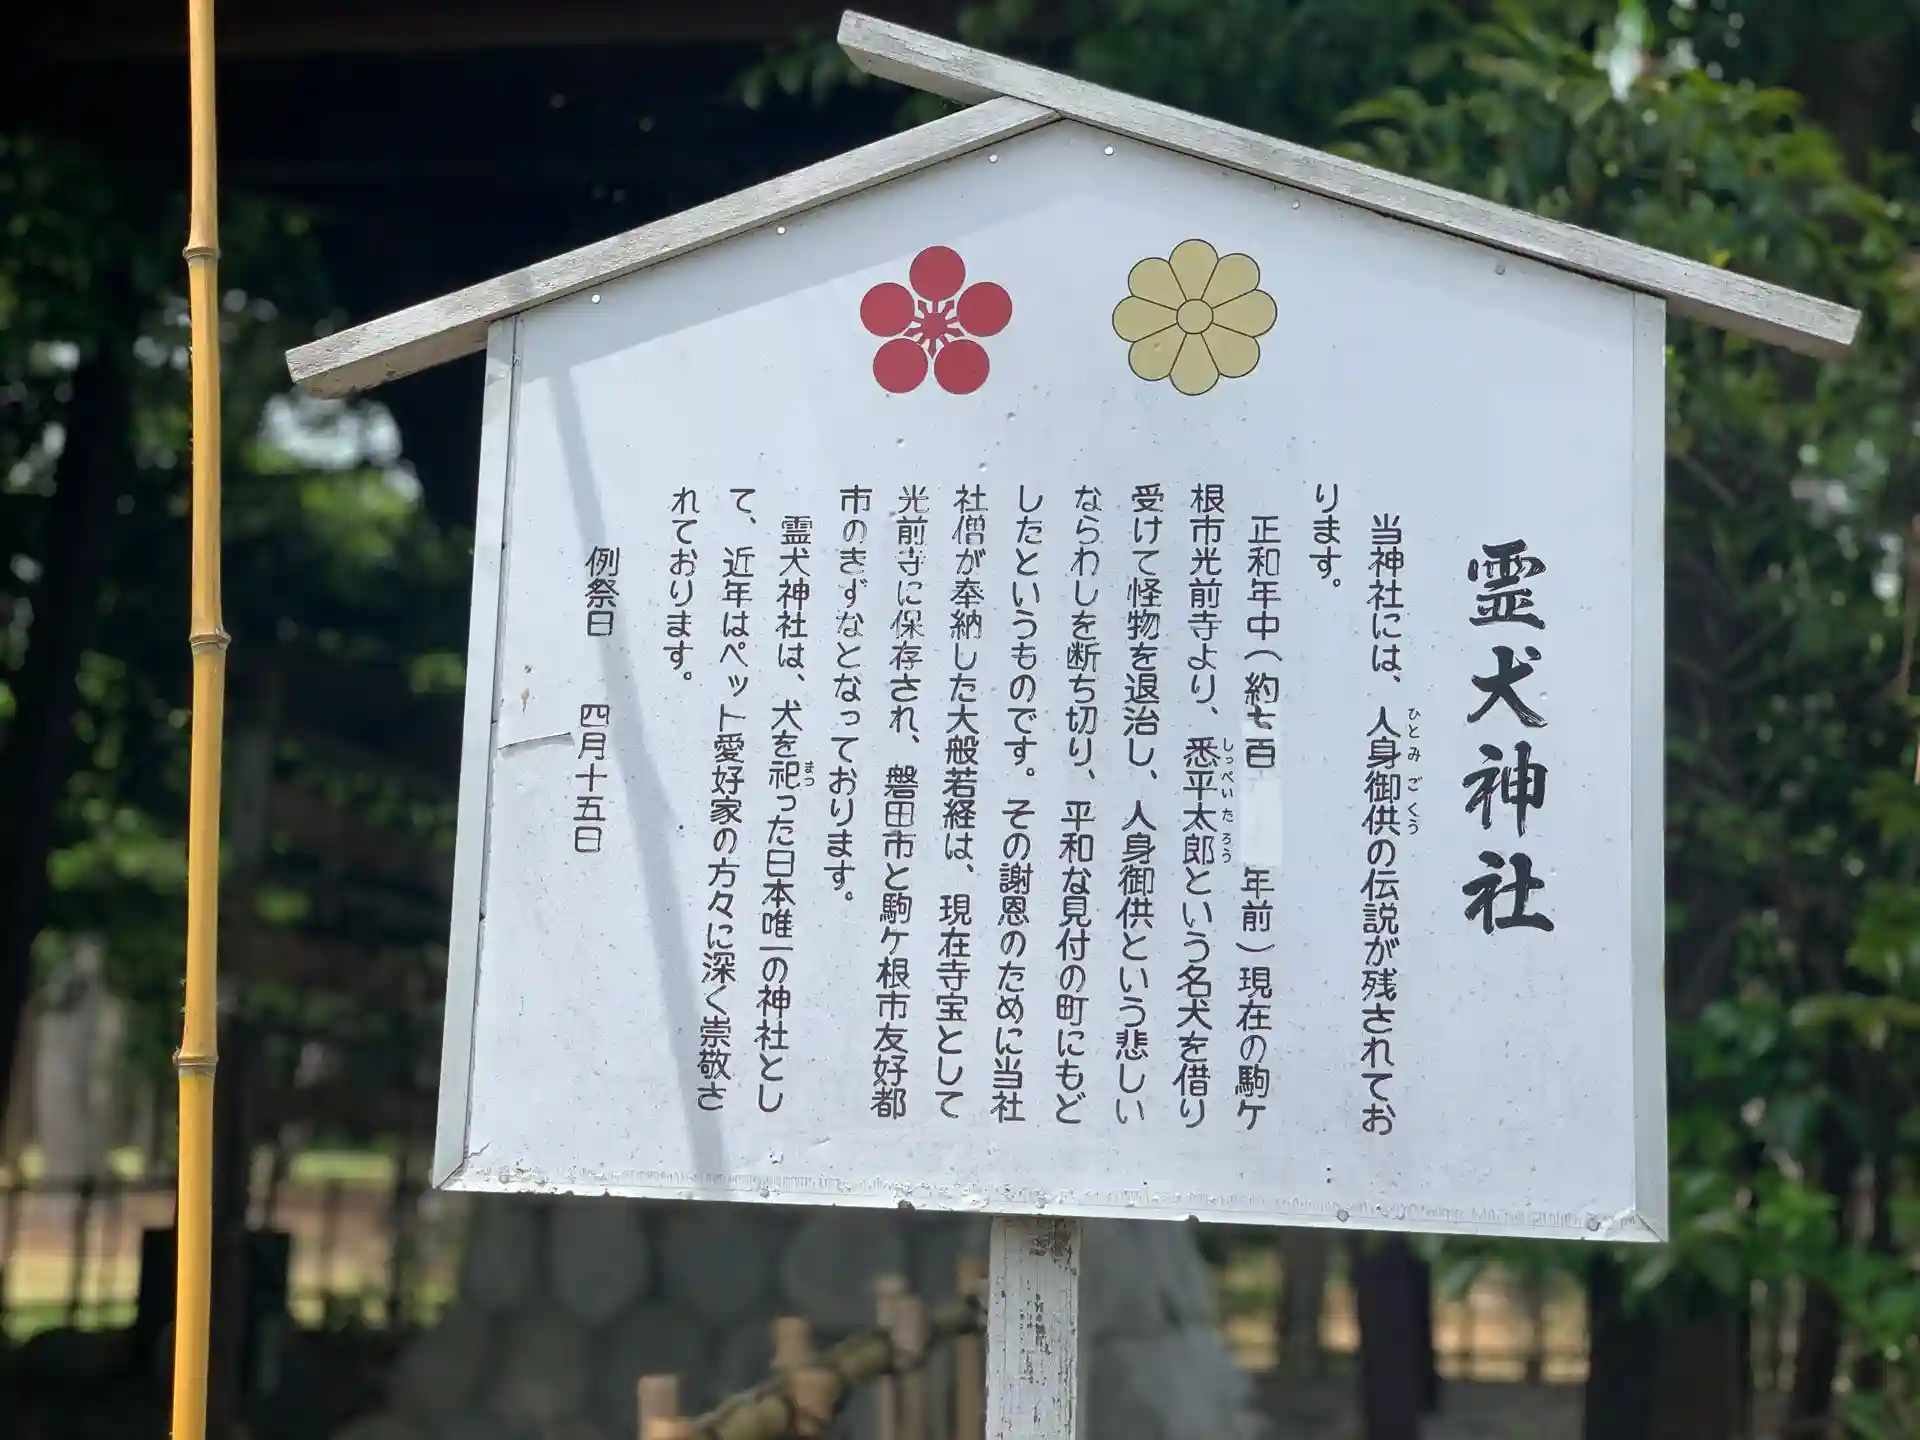 霊犬神社
当神社には、人身御供の伝説が残されてお
ひとみごくう
ります。
正和年中(約七百年前)現在の駒ケ
根市光前寺より、悉平太郎という名犬を借り
しっぺいたろう
受けて怪物を退治し、人身御供という悲しい
ならわしを断ち切り、平和な見付の町にもど
したというものです。その謝恩のために当社
社僧が奉納した大般若経は、現在寺宝として
光前寺に保存され、磐田市と駒ケ根市友好都
市のきずなとなっております。
霊犬神社は、犬を祀った日本唯一の神社とし
まつ
て、近年はペット愛好家の方々に深く崇敬さ
れております。
例祭日 四月十五日